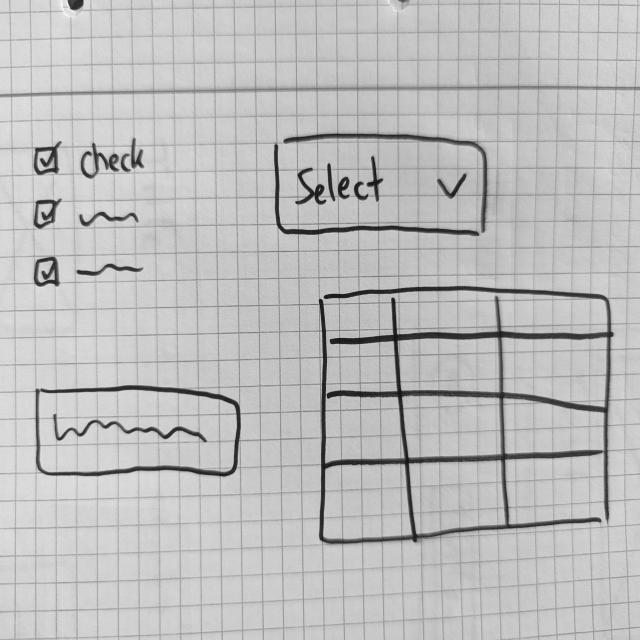 check
Select